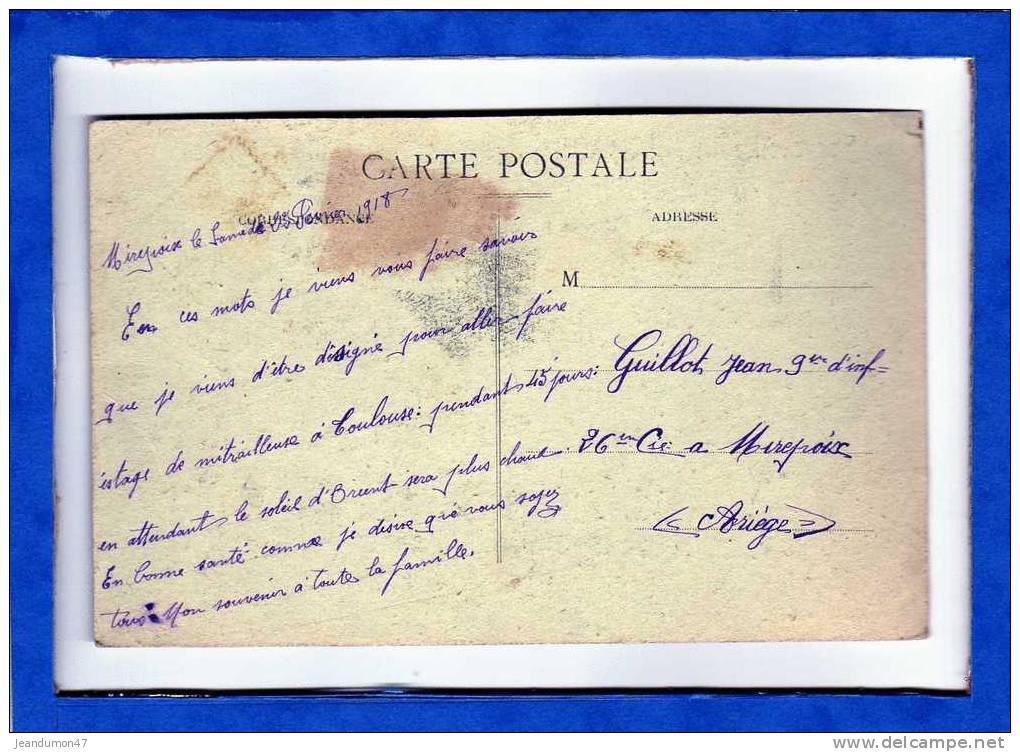 CARTE POSTALE
CORRESPONDANCE
ADRESSE
Mirepoix le Samedi 23 Février 1918
En ces mots je viens vous faire savoir
que je viens d'être désigné pour aller faire
istage de mitrailleuse à Toulouse: pendant 45 jours:
en attendant le soleil d'Orient sera plus chaud.
En bonne santé comme je désire que vous soyez
tous Mon souvenir à toute la famille.
M
Guillot Jean 9me d'inf=
26me Cie a Mirepoix
(Ariège)
jeandumon47
delcampe.net